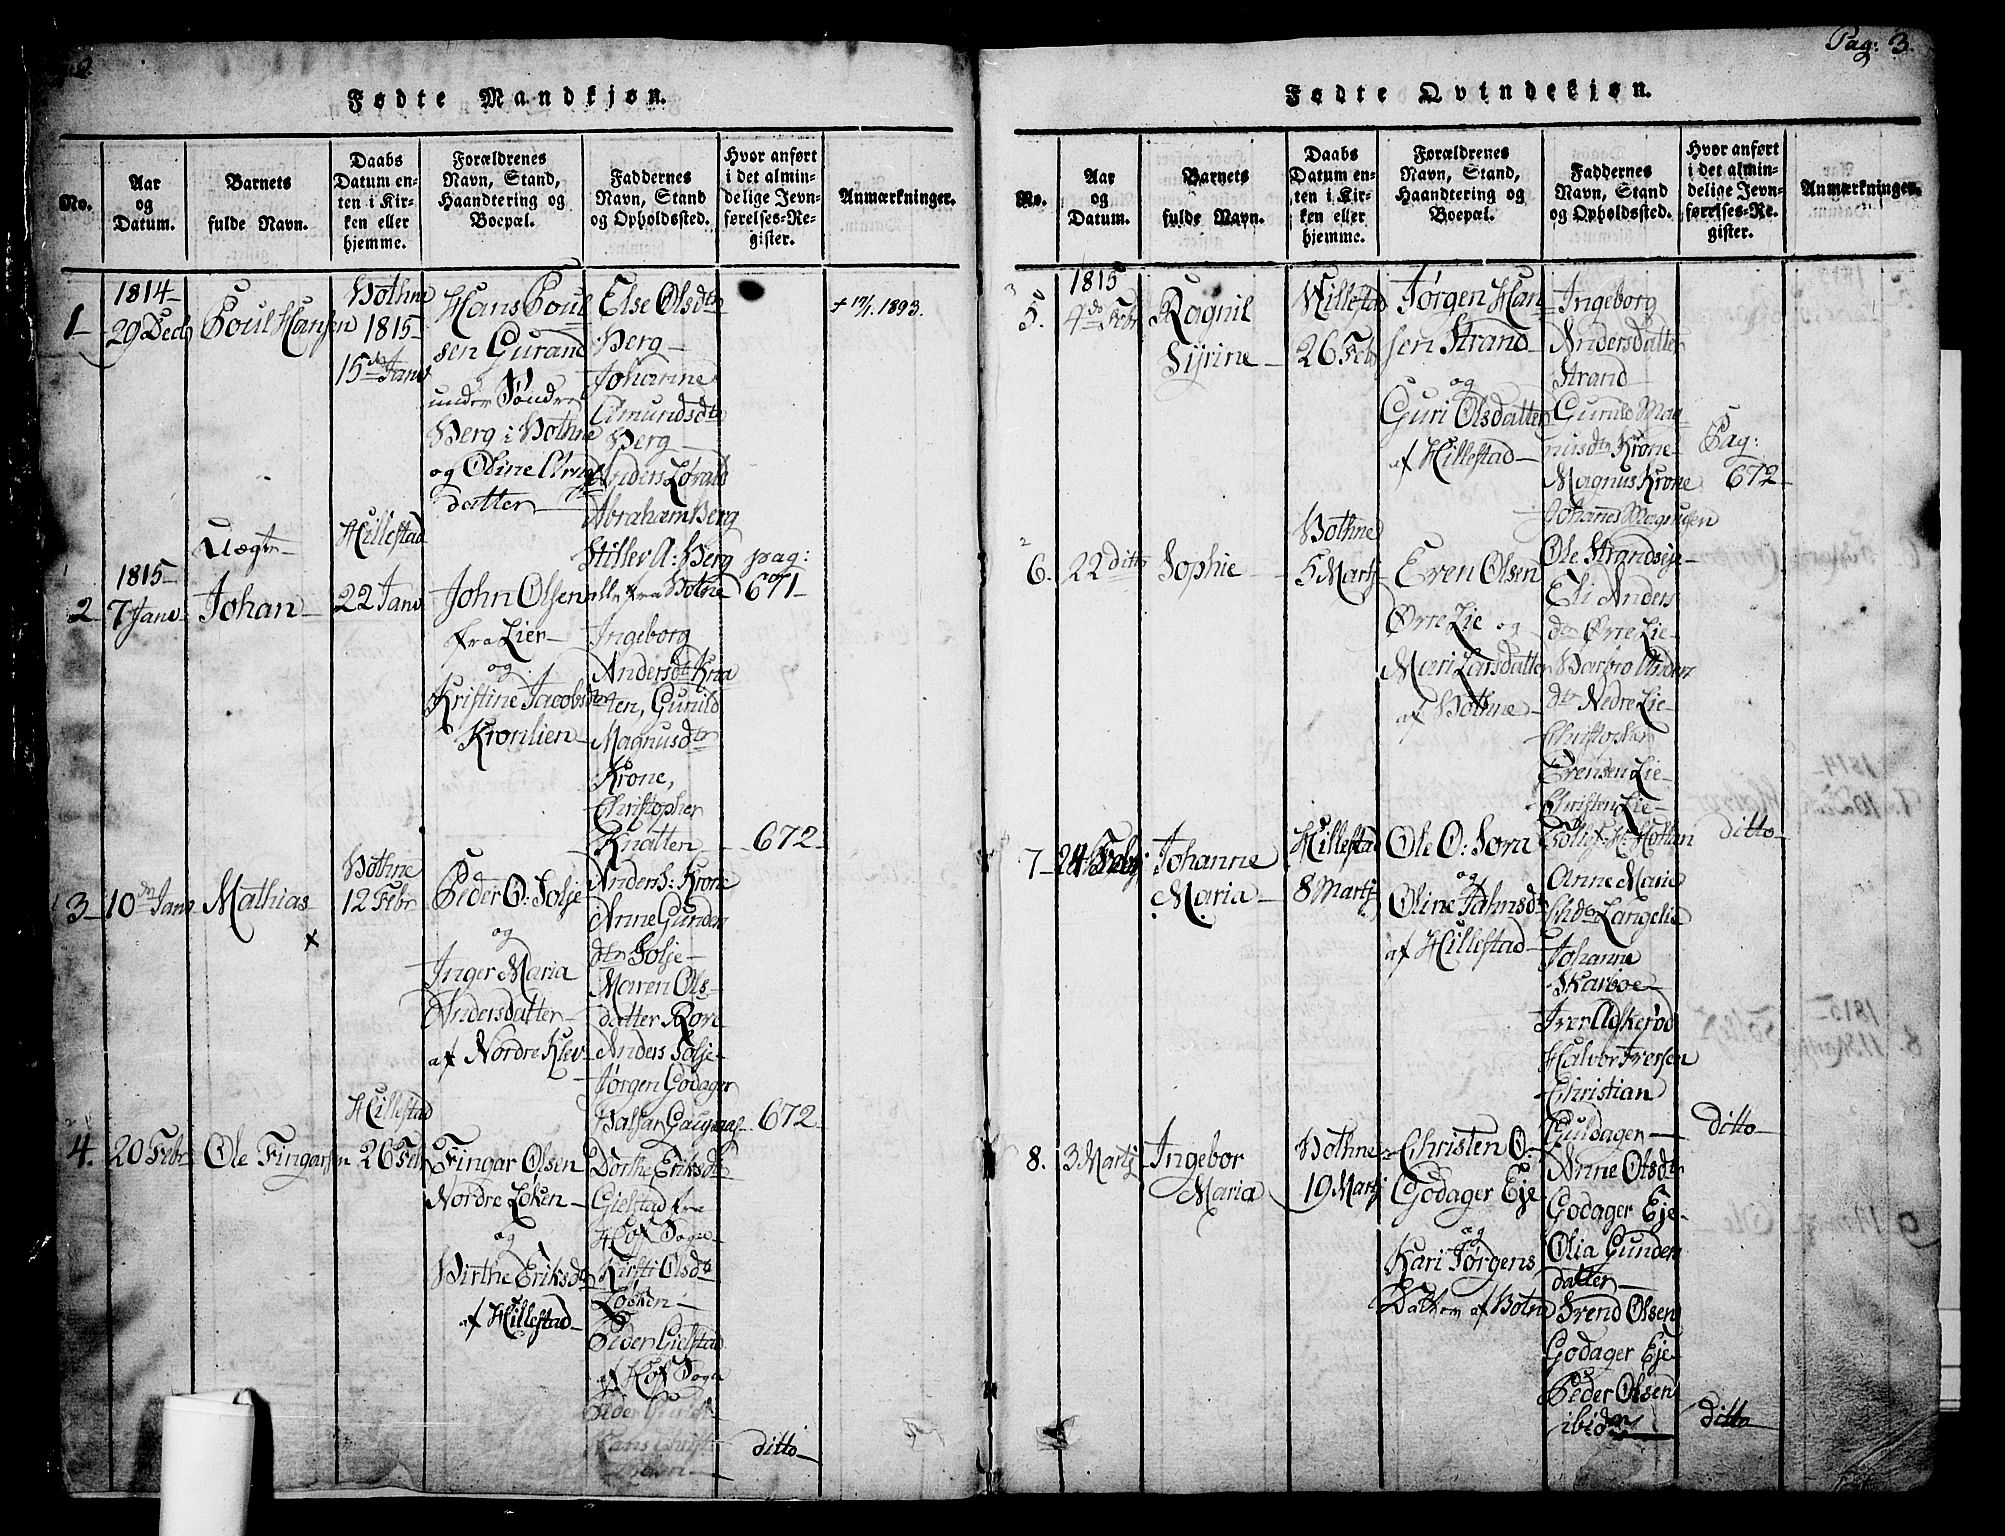 2.
Fødte Mandkjøn.
No.
Aar
og
Datum.
Barnets
fulde Navn.
Daabs
Datum en-
ten i Kir-
ken eller
hjemme.
Forældrenes
Navn, Stand,
Haandtering og
Boepæl.
Faddernes
Navn, Stand
og Opholdssted.
Hvor anført
i det almin-
delige Jevn-
førelses-Re-
gister.
Anmærkninger.
1
1814
29 Decb
Poul Hansen
Bothne
1815
15de Janv
Hans Poul
sen Gurand
under Søndre
Berg i Bothne
og Oline
datter
Else Olsdtr
Berg
Johanne
Amundsdtr
Berg
Anders
Abraham Berg
A: Berg
alle fra Botne
pag:
671
+ 17/1. 1893.
2
1815
7 Janv
Uægte
Johan
Hillestad
22 Janv
John Olsen
fra Lier
og
Kristine Jacobsdtr
Ingeborg
Andersdtr Kna
ten, Gunild
Magnusdtr
Krone,
Christopher
Knatten
672
3
10de Janv
Mathias
x
Bothne
12 Febr
Peder O: Solje
og
Inger Maria
Andersdatter
af Nordre Klev
Anders: Krone
Anne Gunder
dtr Solje
Maren Ols
datter Rore
Anders Solje
Jørgen Godager
672
4.
20 Febr
Ole Fingarsen
Hillestad
26 Febr
Fingar Olsen
Nordre Løken
og
Birthe Eriksdtr
af Hillestad
Dorthe Eriksdtr
Gielstad fra
Hof Sogn
Kirsti Olsdtr
Løken
Peder Gielstad
af Hof Sogn
ditto
Pag: 3.
Fødte Qvindekjøn.
No.
Aar
og
Datum.
Barnets
fulde Navn.
Daabs
Datum en-
ten i Kir-
ken eller
hjemme.
Forældrenes
Navn, Stand,
Haandtering og
Boepæl.
Faddernes
Navn, Stand
og Opholdssted.
Hvor anført
i det almin-
delige Jevn-
førelses-Re-
gister.
Anmærkninger.
5.
1815
4de Febr
Ragnil
Syrine
Hillestad
26 Feb
Jørgen Han
sen Strand
og
Guri Olsdatter
af Hillestad
Ingeborg
Andersdatter
Strand
Gunild Mag
nusdtr Krone
Magnus Krone
Johannes Magnusen
Ole Strandseje
Pag:
672
6.
22 ditto
Sophie
Bothne
5 Martj
Even Olsen
Ørre Lie og
Mari Larsdatter
af Bothne
Eli Anders
dtr Ørre Lie
Barbro Anders
dtr Nedre Lie
Christopher
Evensen Lie
Christen Lie
ditto
7
24 Febr
Johanne
Maria
Hillestad
8 Martj
Ole O: Sorn
og
Oline Jahnsdtr
af Hillestad
Anne Marie
Langelie
Johanne
Skarboe
Iver Askerød
Halvor Iversen
Christian
Guldager
ditto
8.
3 Martj
Ingebor
Maria
Bothne
19 Martj
Christen O:
Godager Eje
og
Kari Jørgens
Datter af Botne
Anne Olsdtr
Godager Eje
Olia Gunder
datter
Svend Olsen
Godager Eje
Peder Olsen
ibidem
ditto